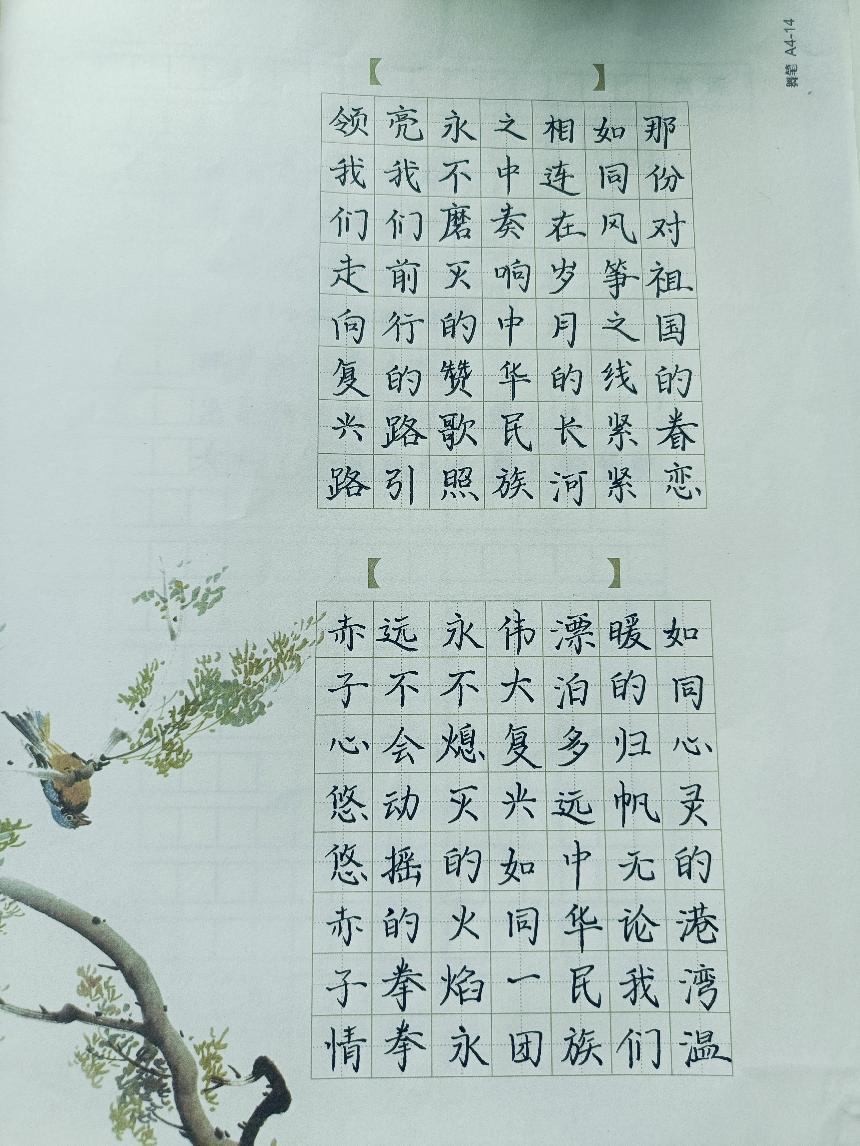 舞笔 A4-14
【 】
那份对祖国的眷恋
如同风筝之线紧紧
相连在岁月的长河
之中奏响中华民族
永不磨灭的赞歌照
亮我们前行的路引
领我们走向复兴路
【 】
如同心灵的港湾温
暖的归帆无论我们
漂泊多远中华民族
伟大复兴如同一团
永不熄灭的火焰永
远不会动摇的拳拳
赤子心悠悠赤子情